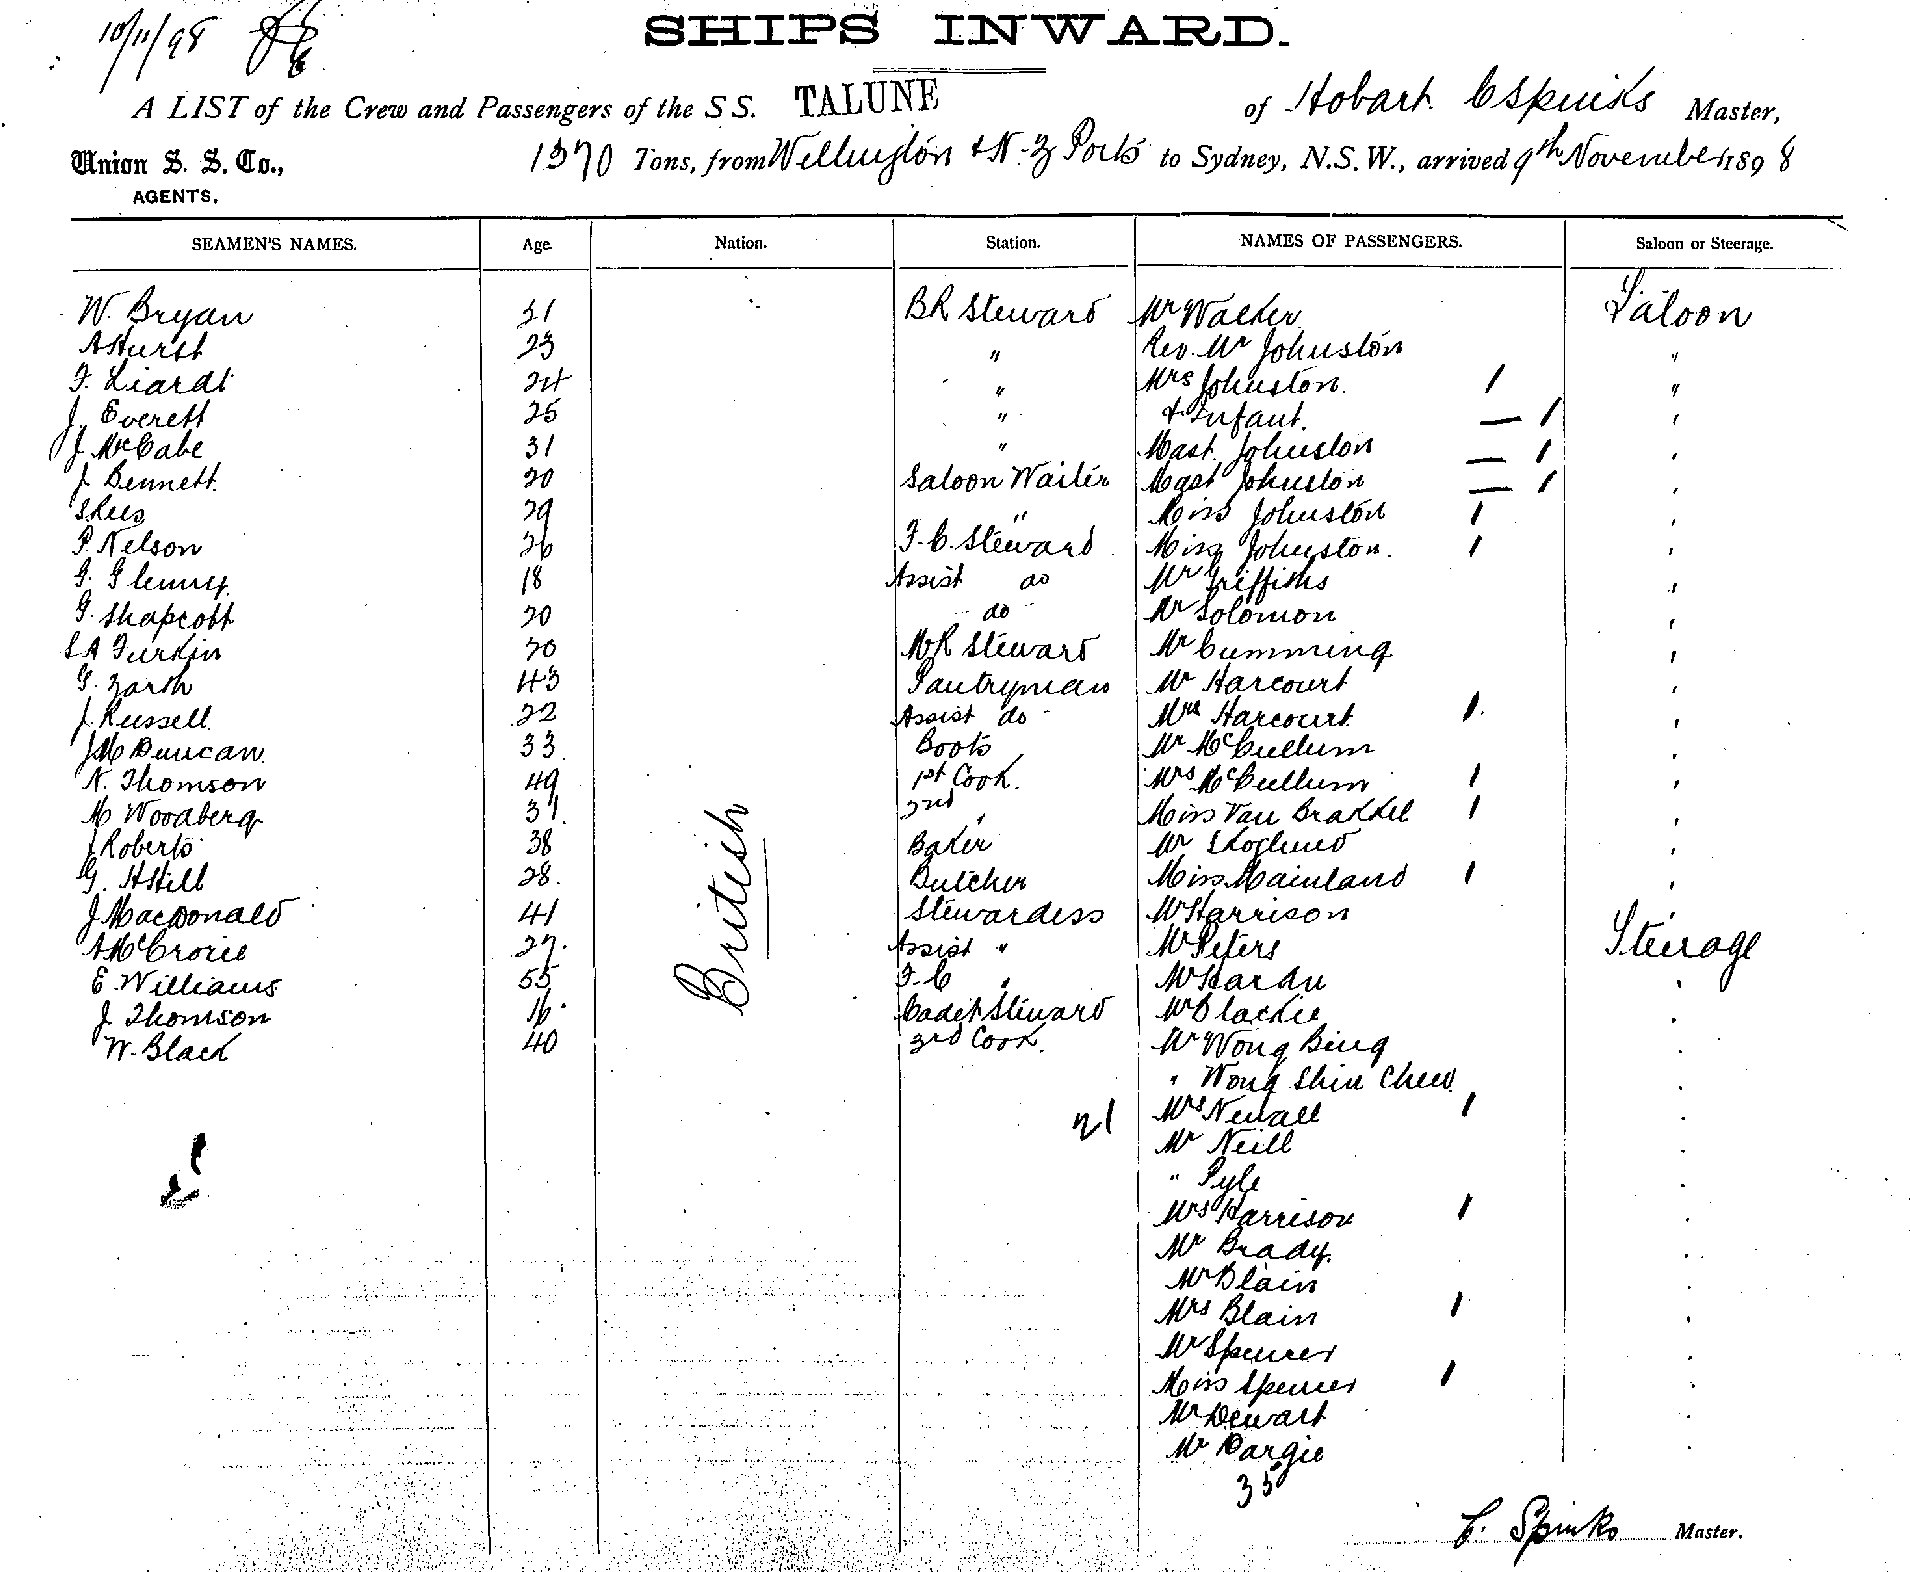 10/11/98
SHIPS INWARD.
A LIST of the Crew and Passengers of the S S. TALUNE of Hobart C Spinks Master,
Union S. S. Co., 1370 Tons, from Wellington & N. Z Ports to Sydney, N.S.W., arrived 9th November 1898
AGENTS.
SEAMEN'S NAMES. Age. Nation. Station. NAMES OF PASSENGERS. Saloon or Steerage.
W. Bryan 31 BR Steward Mr Walker Saloon
A Hurst 23 " Rev. Mr Johnston "
F. Liardt 24 " Mrs Johnston. 1 "
J. Everett 25 " & Infant. — 1 "
J McCabe 31 " Mast. Johnston — 1 "
J Bennett. 20 Saloon Waiter Mast Johnston — 1 "
S Rees 29 " Miss Johnston 1 "
P. Nelson 26 F. C. Steward Miss Johnston. 1 "
G. Glenny. 18 Assist do Mr Griffiths "
G. Shapcott 20 do Mr Solomon "
S A Furkin 20 MR Steward Mr Cumming "
G. Zarth 43 Pantryman Mr Harcourt "
J. Russell. 22 Assist do Mrs Harcourt 1 "
J M Duncan. 33 Boots Mr McCullum "
N. Thomson 49 1st Cook. Mrs McCullum 1 "
M Woodberg 31 2nd " Miss Van Brakkel 1 "
J Roberts 38 Baker Mr Skoglund "
G. H Hill 28. Butcher Miss Mainland 1 "
J MacDonald 41 Stewardess Mr Harrison "
A McCrorie 27. Assist " Mr Peters Steerage
E. Williams 55 F. C " Mr Hardy "
J. Thomson 16. Cadet Steward Mr Blackie "
W. Black 40 3rd Cook. Mr Wong Bing "
British
" Wong Shin Chew "
21 Mrs Newall 1 "
Mr Neill "
" Pyle "
Mrs Harrison 1 "
Mr Brady. "
Mr Blain "
Mrs Blain 1 "
Mr Spencer "
Miss Spencer 1 "
Mr Dewart "
Mr Dargie "
35
C. Spinks Master.